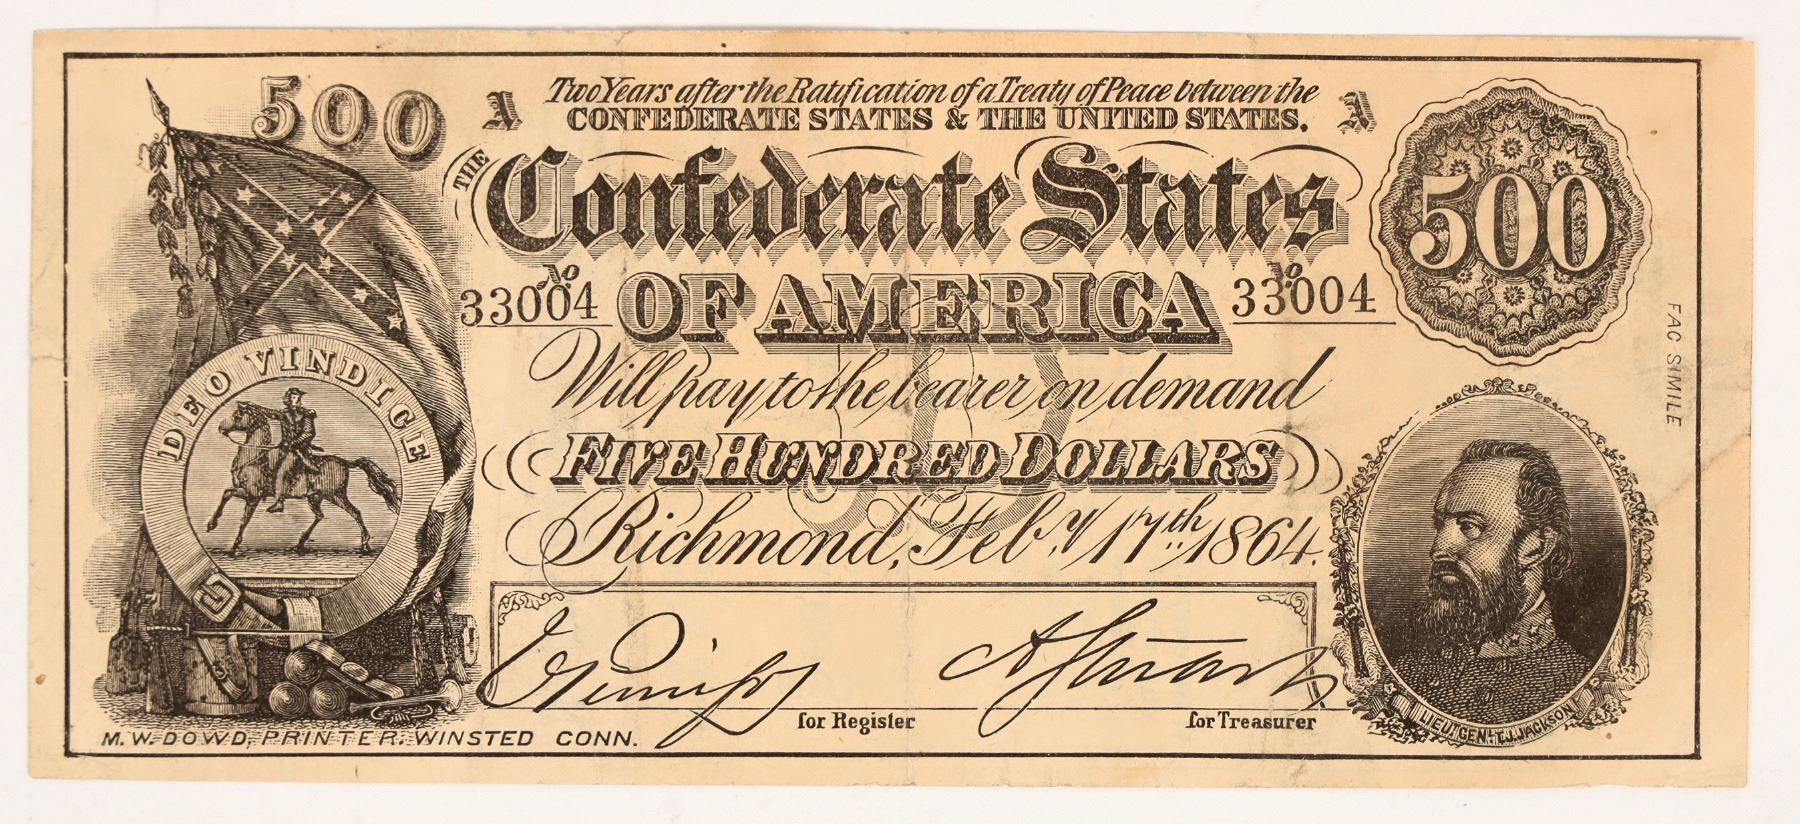 500
A
Two Years after the Ratification of a Treaty of Peace between the
CONFEDERATE STATES & THE UNITED STATES.
A
500
THE
Confederate States
OF AMERICA
No.
33004
No.
33004
Will pay to the bearer on demand
FIVE HUNDRED DOLLARS
Richmond, Feb.y 17th 1864.
DEO VINDICE
for Register
for Treasurer
M. W. DOWD, PRINTER. WINSTED CONN.
LIEU. GENL. T.J. JACKSON
FAC SIMILE